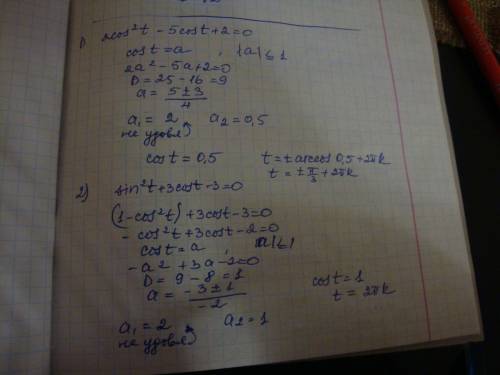 1) 2cos²t - 5cost + 2 = 0
cost = a , |a| ≤ 1
2a² - 5a + 2 = 0
D = 25 - 16 = 9
a = (5 ± 3)/4
a₁ = 2 a₂ = 0,5
не удовл.
cost = 0,5 t = ± arccos 0,5 + 2πk
t = ± π/3 + 2πk
2) sin²t + 3cost - 3 = 0
(1 - cos²t) + 3cost - 3 = 0
- cos²t + 3cost - 2 = 0
cost = a , |a| ≤ 1
- a² + 3a - 2 = 0
D = 9 - 8 = 1
a = (-3 ± 1)/-2
cost = 1
t = 2πk
a₁ = 2 a₂ = 1
не удовл.